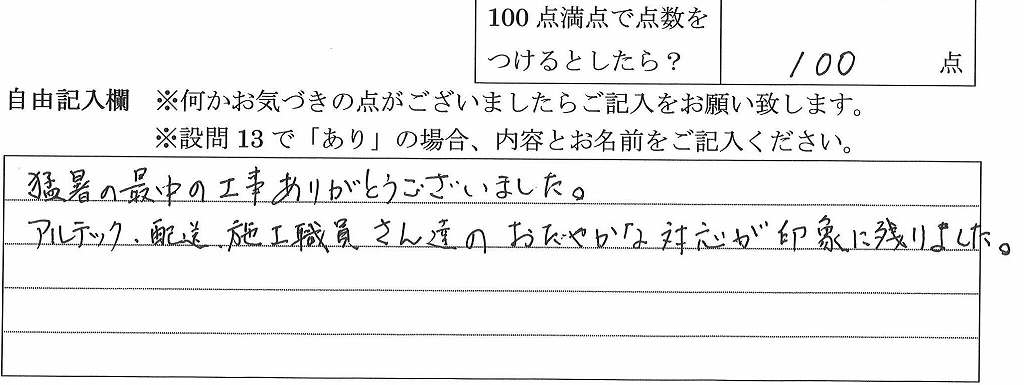 100点満点で点数を
つけるとしたら？
100 点
自由記入欄 ※何かお気づきの点がございましたらご記入をお願い致します。
※設問13で「あり」の場合、内容とお名前をご記入ください。
猛暑の最中の工事ありがとうございました。
アルテック、配送、施工職員さん達のおだやかな対応が印象に残りました。